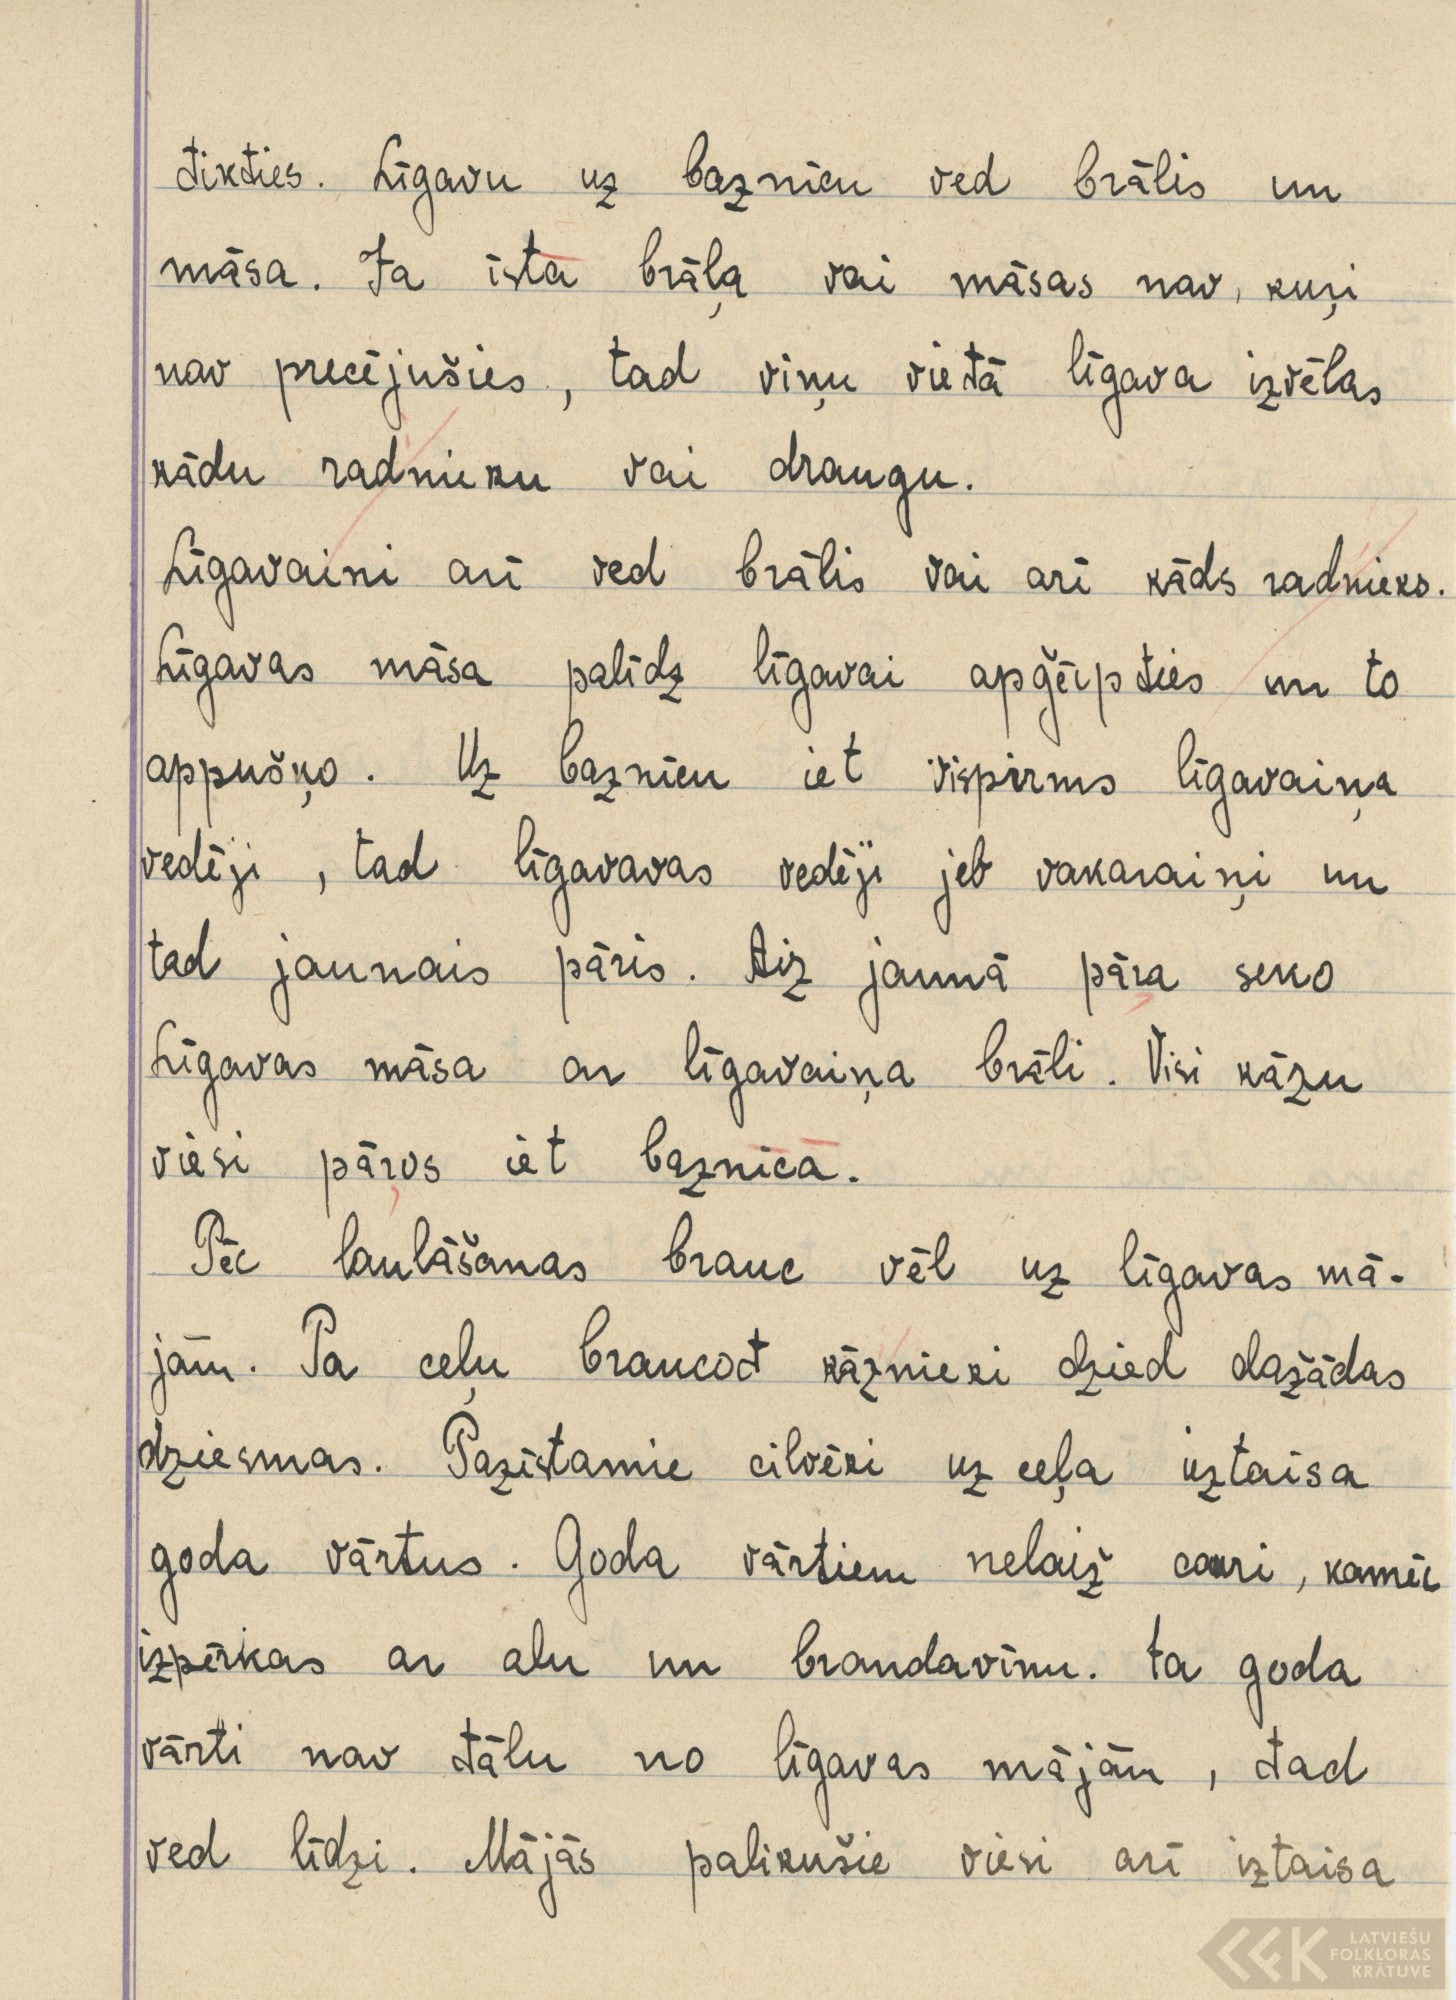 tikties. Līgavu uz baznīcu ved brālis un
māsa. Ja īstā brāļa vai māsas nav, kuŗi
nav precējušies, tad viņu vietā līgava izvēlas
kādu radnieku vai draugu.
Līgavaini arī ved brālis vai arī kāds radnieks.
Līgavas māsa palīdz līgavai apģērpties un to
appušķo. Uz baznīcu iet vispirms līgavaiņa
vedēji, tad līgavavas vedēji jeb vakaraiņi un
tad jaunais pāris. Aiz jaunā pāra seko
Līgavas māsa ar līgavaiņa brāli. Visi kāzu
viesi pāŗos iet baznīcā.
Pēc laulāšanas brauc vēl uz līgavas mā-
jām. Pa ceļu braucot kāznieki dzied dažādas
dziesmas. Pazīstamie cilvēki uz ceļa uztaisa
goda vārtus. Goda vārtiem nelaiž cauri, kamēr
izpērkas ar alu un brandavīnu. Ja goda
vārti nav tālu no līgavas mājām, tad
ved līdzi. Mājās palikušie viesi arī iztaisa
LATVIEŠU
FOLKLORAS
KRĀTUVE